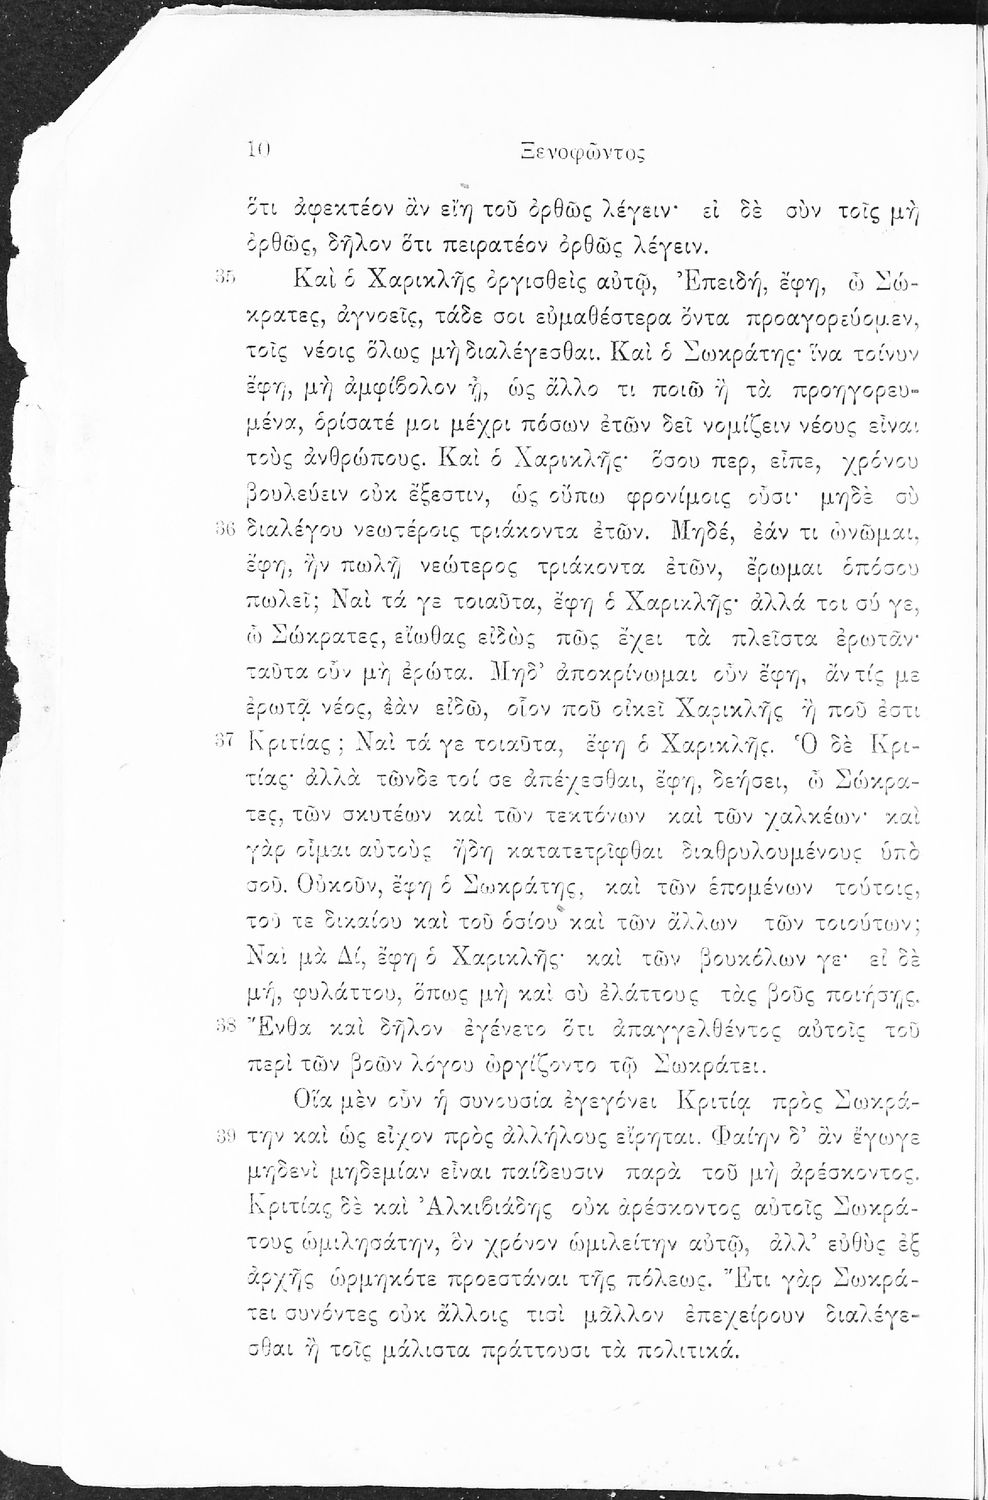 10 Ξενοφῶντος
ὅτι ἀφεκτέον ἂν εἴη τοῦ ὀρθῶς λέγειν· εἰ δὲ σὺν τοῖς μὴ
ὀρθῶς, δῆλον ὅτι πειρατέον ὀρθῶς λέγειν.
35 Καὶ ὁ Χαρικλῆς ὀργισθεὶς αὐτῷ, Ἐπειδή, ἔφη, ὦ Σώ-
κρατες, ἀγνοεῖς, τάδε σοι εὐμαθέστερα ὄντα προαγορεύομεν,
τοῖς νέοις ὅλως μὴ διαλέγεσθαι. Καὶ ὁ Σωκράτης· ἵνα τοίνυν
ἔφη, μὴ ἀμφίβολον ᾖ, ὡς ἄλλο τι ποιῶ ἢ τὰ προηγορευ-
μένα, ὁρίσατέ μοι μέχρι πόσων ἐτῶν δεῖ νομίζειν νέους εἶναι
τοὺς ἀνθρώπους. Καὶ ὁ Χαρικλῆς· ὅσου περ, εἶπε, χρόνου
βουλεύειν οὐκ ἔξεστιν, ὡς οὔπω φρονίμοις οὖσι· μηδὲ σὺ
36 διαλέγου νεωτέροις τριάκοντα ἐτῶν. Μηδέ, ἐάν τι ὠνῶμαι,
ἔφη, ἢν πωλῇ νεώτερος τριάκοντα ἐτῶν, ἔρωμαι ὁπόσου
πωλεῖ; Ναὶ τά γε τοιαῦτα, ἔφη ὁ Χαρικλῆς· ἀλλά τοι σύ γε,
ὦ Σώκρατες, εἴωθας εἰδὼς πῶς ἔχει τὰ πλεῖστα ἐρωτᾶν·
ταῦτα οὖν μὴ ἐρώτα. Μηδ’ ἀποκρίνωμαι οὖν ἔφη, ἄν τίς με
ἐρωτᾷ νέος, ἐὰν εἰδῶ, οἷον ποῦ οἰκεῖ Χαρικλῆς ἢ ποῦ ἐστι
37 Κριτίας; Ναὶ τά γε τοιαῦτα, ἔφη ὁ Χαρικλῆς. Ὁ δὲ Κρι-
τίας· ἀλλὰ τῶνδε τοί σε ἀπέχεσθαι, ἔφη, δεήσει, ὦ Σώκρα-
τες, τῶν σκυτέων καὶ τῶν τεκτόνων καὶ τῶν χαλκέων· καὶ
γὰρ οἶμαι αὐτοὺς ἤδη κατατετρῖφθαι διαθρυλουμένους ὑπὸ
σοῦ. Οὐκοῦν, ἔφη ὁ Σωκράτης, καὶ τῶν ἑπομένων τούτοις,
τοῦ τε δικαίου καὶ τοῦ ὁσίου καὶ τῶν ἄλλων τῶν τοιούτων;
Ναὶ μὰ Δί, ἔφη ὁ Χαρικλῆς· καὶ τῶν βουκόλων γε· εἰ δὲ
μή, φυλάττου, ὅπως μὴ καὶ σὺ ἐλάττους τὰς βοῦς ποιήσῃς.
38 Ἔνθα καὶ δῆλον ἐγένετο ὅτι ἀπαγγελθέντος αὐτοῖς τοῦ
περὶ τῶν βοῶν λόγου ὠργίζοντο τῷ Σωκράτει.
Οἵα μὲν οὖν ἡ συνουσία ἐγεγόνει Κριτίᾳ πρὸς Σωκρά-
39 την καὶ ὡς εἶχον πρὸς ἀλλήλους εἴρηται. Φαίην δ’ ἂν ἔγωγε
μηδενὶ μηδεμίαν εἶναι παίδευσιν παρὰ τοῦ μὴ ἀρέσκοντος.
Κριτίας δὲ καὶ Ἀλκιβιάδης οὐκ ἀρέσκοντος αὐτοῖς Σωκρά-
τους ὡμιλησάτην, ὃν χρόνον ὡμιλείτην αὐτῷ, ἀλλ’ εὐθὺς ἐξ
ἀρχῆς ὡρμηκότε προεστάναι τῆς πόλεως. Ἔτι γὰρ Σωκρά-
τει συνόντες οὐκ ἄλλοις τισὶ μᾶλλον ἐπεχείρουν διαλέγε-
σθαι ἢ τοῖς μάλιστα πράττουσι τὰ πολιτικά.